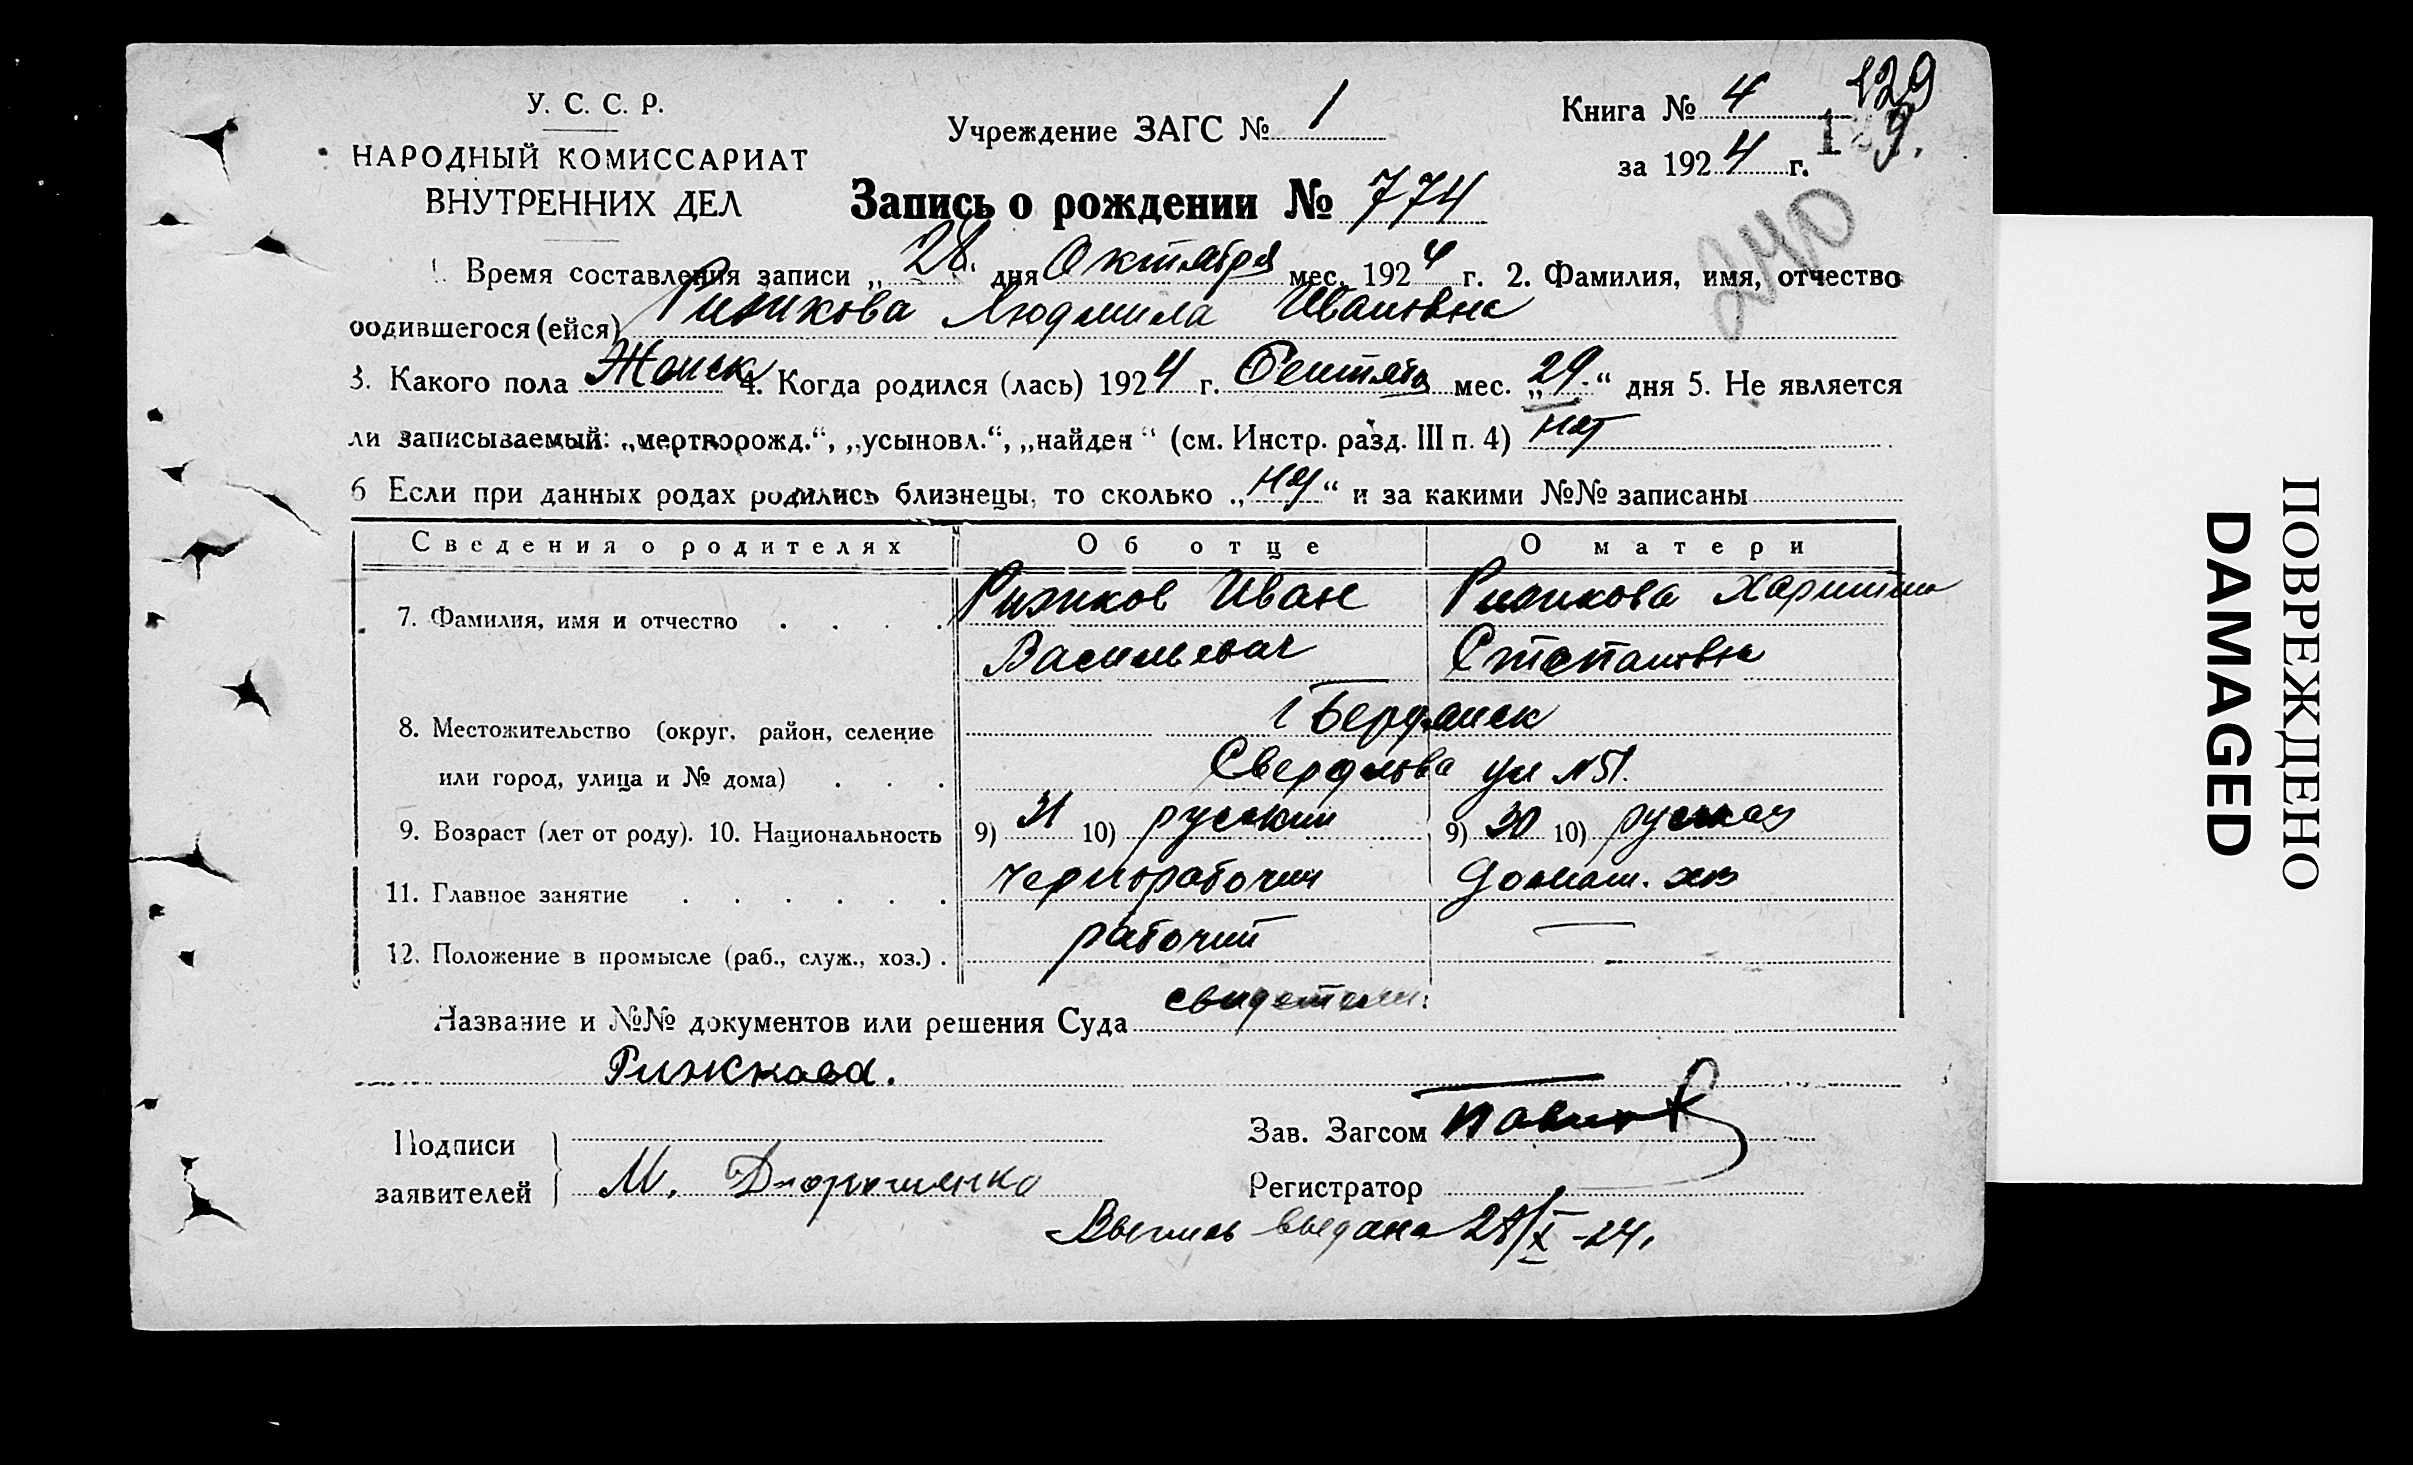 У. С. С. Р.
НАРОДНЫЙ КОМИССАРИАТ
ВНУТРЕННИХ ДЕЛ
Учреждение ЗАГС № 1
Книга № 4
129
за 1924 г.
Запись о рождении № 774
240
1. Время составления записи „28." дня Октября мес. 1924 г. 2. Фамилия, имя, отчество
родившегося (ейся) Рижикова Людмила Ивановна
3. Какого пола Женск 4. Когда родился (лась) 1924 г. Сентяб мес. „29." дня 5. Не является
ли записываемый: „мертворожд.“, „усыновл.“, „найден“ (см. Инстр. разд. III п. 4) Нет
6 Если при данных родах родились близнецы, то сколько „нет“ и за какими №№ записаны
Сведения о родителях Об отце О матери
7. Фамилия, имя и отчество . . . . Рижиков Иван Рижикова Харитина
Васильевич Степановна
8. Местожительство (округ, район, селение г Бердянск
или город, улица и № дома) . . . Свердлова ул №51.
9. Возраст (лет от роду). 10. Национальность 9) 31 10) русский 9) 30 10) русская
11. Главное занятие . . . . . . чернорабочий домаш. хоз
12. Положение в промысле (раб., служ., хоз.) . рабочий —
Название и №№ документов или решения Суда свидетели:
Рижкова.
Подписи
заявителей
М. Дорошенко
Зав. Загсом
Регистратор
Выпись выдана 28/X-24.
ПОВРЕЖДЕНО
DAMAGED